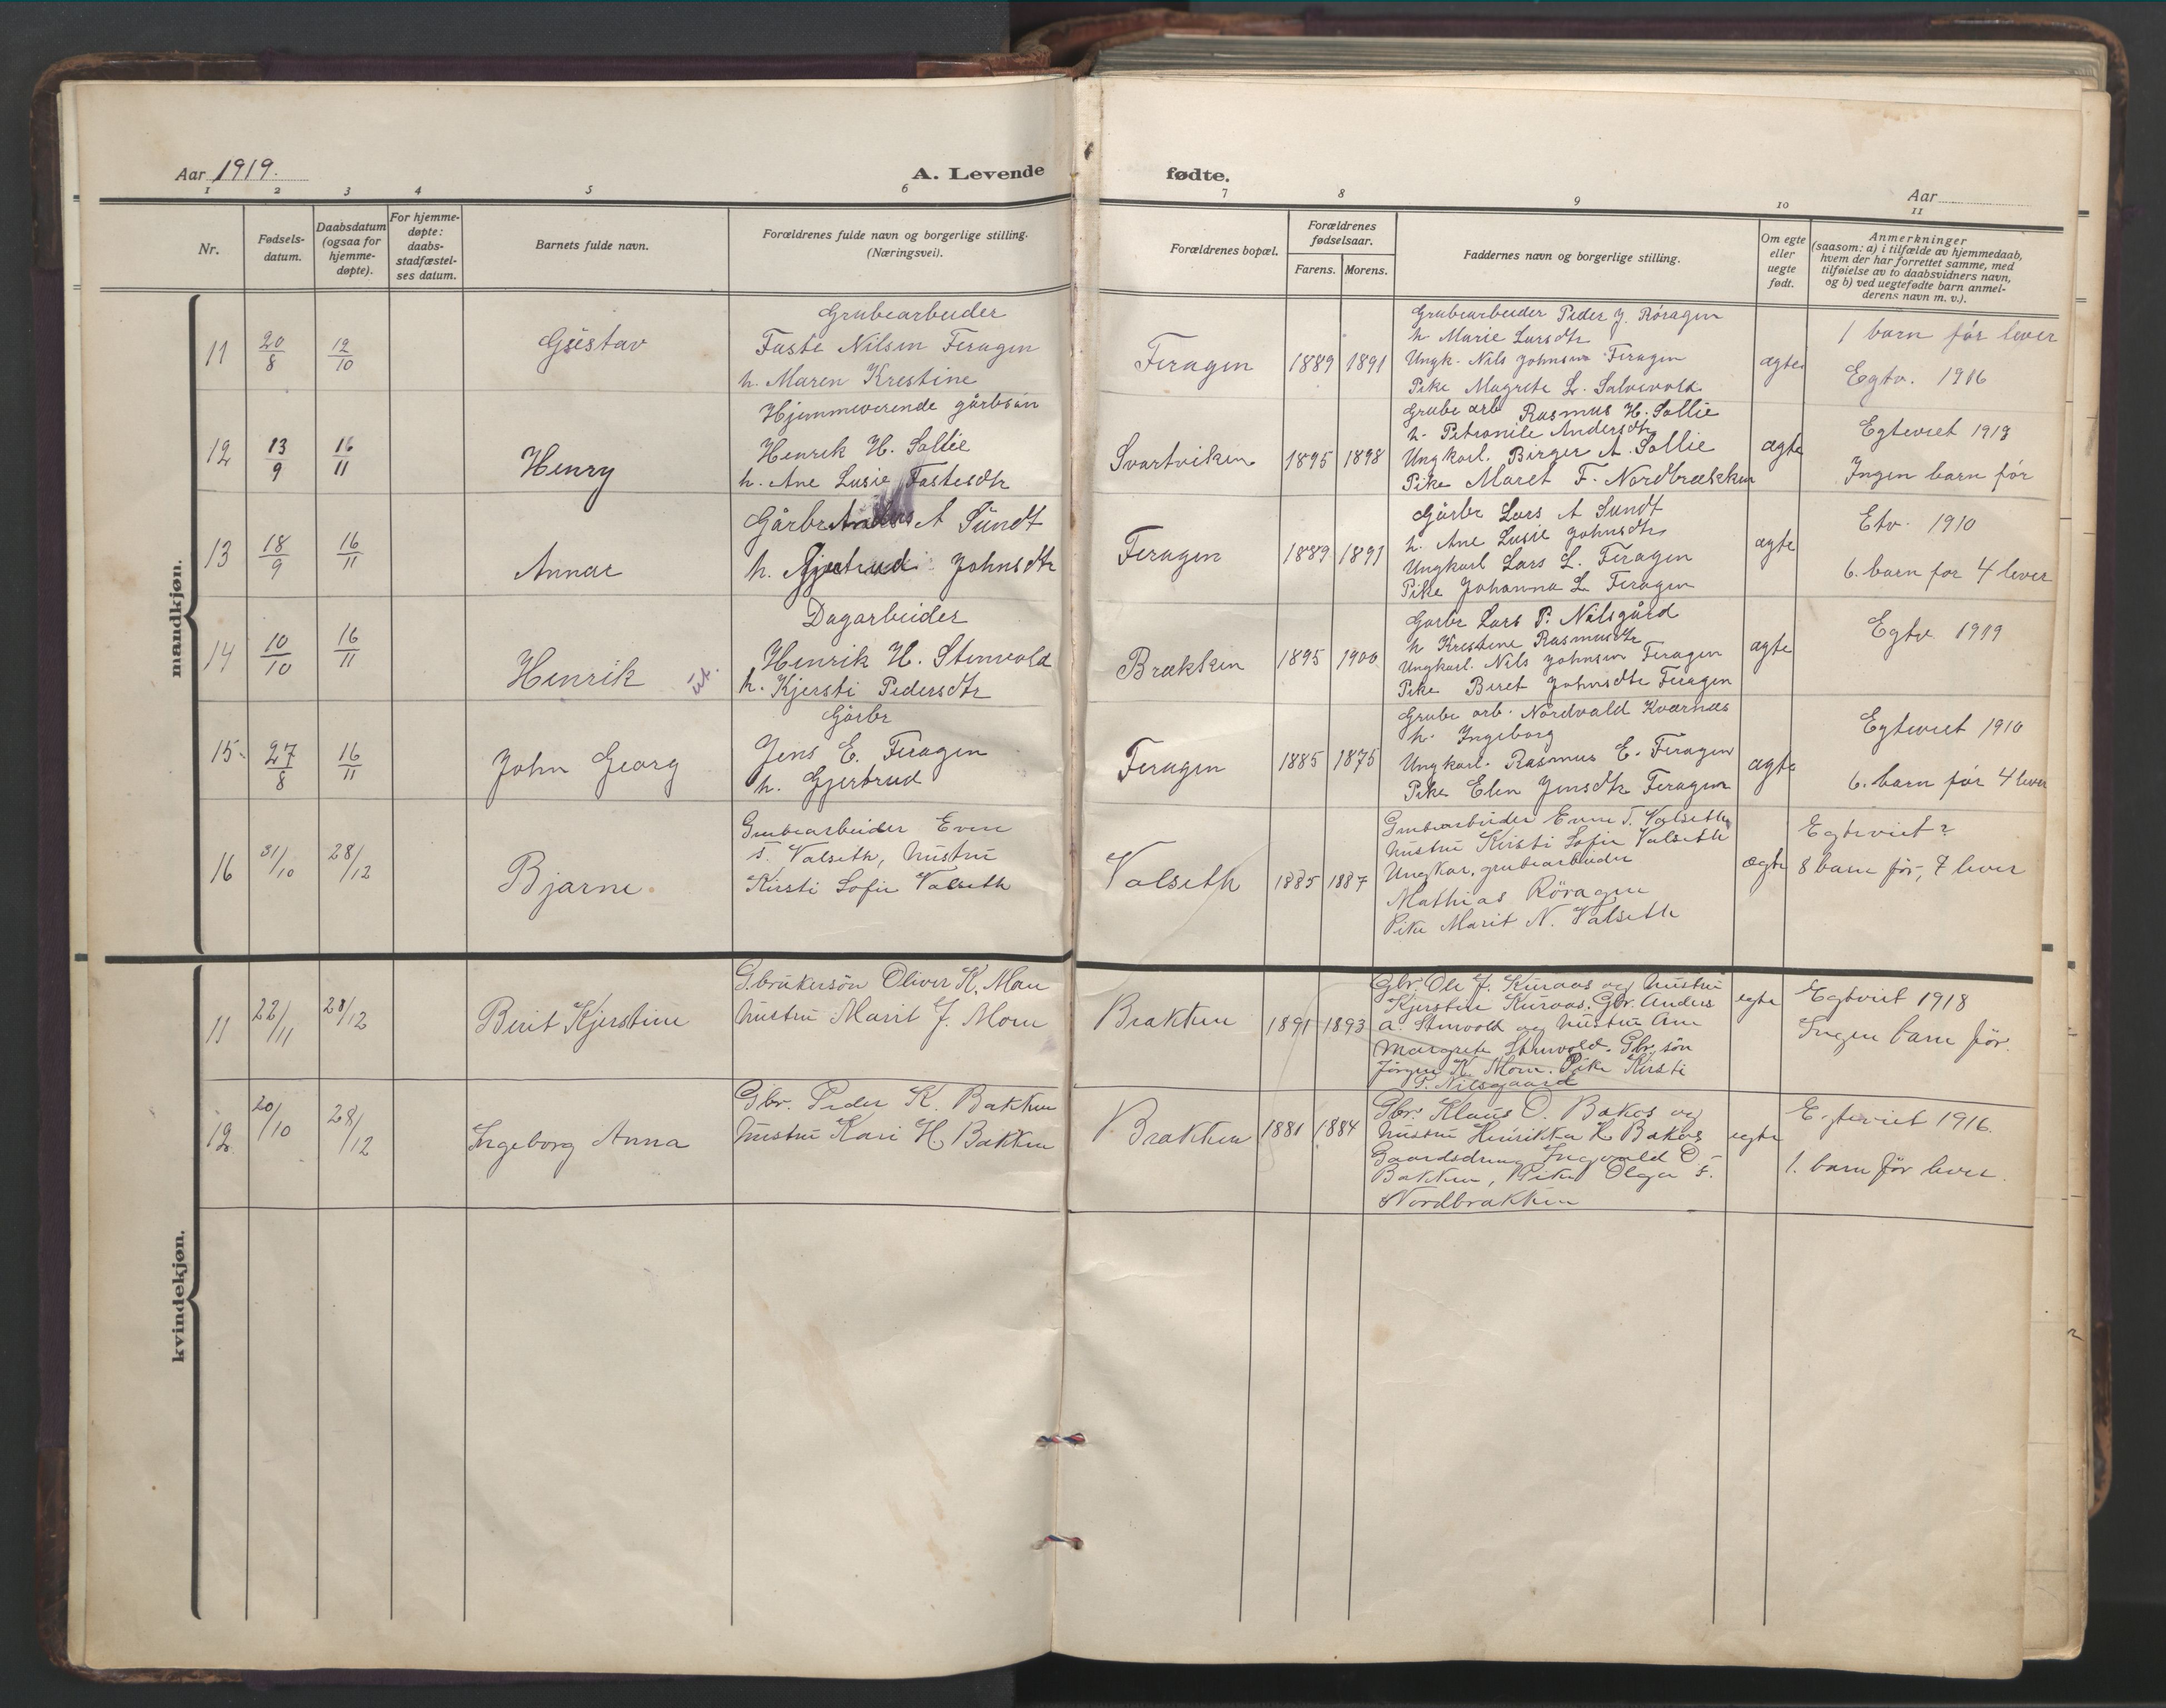 Aar 1919.
A. Levende
fødte.
Aar
1 2 3 4 5 6 7 8 9 10 11
Nr.
Fødsels-
datum.
Daabsdatum
(ogsaa for
hjemme-
døpte).
For hjemme-
døpte:
daabs-
stadfæstel-
ses datum.
Barnets fulde navn.
Forældrenes fulde navn og borgerlige stilling.
(Næringsvei).
Forældrenes bopæl.
Forældrenes
fødselsaar.
Farens. Morens.
Faddernes navn og borgerlige stilling.
Om egte
eller
uegte
født.
Anmerkninger
(saasom: a) i tilfælde av hjemmedaab,
hvem der har forrettet samme, med
tilføielse av to daabsvidners navn,
og b) ved uegtefødte barn anmel-
derens navn m. v.).
mandkjøn.
11 20/8 12/10 Gustav
Grubearbeider
Faste Nilsen Feragen
h. Maren Krestine
Feragen 1889 1891
Grubearbeider Peder J. Röragen
h. Marie Larsdtr
Ungk. Nils Johnsen Feragen
Pike Magrete L.
ægte
1 barn før lever
Egtv. 1916
12 13/9 16/11 Henry
Hjemmeverende gårbsön
Henrik H. Sollie
h. Ane Lusie Fastesdtr
Svartviken 1895 1898
Grube arb Rasmus H. Sollie
h. Petronile Andersdtr
Ungkarl. Birger A. Sollie
Pike Maret F. Nordbrækken
ægte
Egteviet 1919
Ingen barn før
13 18/9 16/11 Annar
Gårbr Anders A Sundt
h. Gjertrud Johnsdtr
Feragen 1889 1891
Gårbr Lars A Sundt
h. Ane Lusie Johnsdtr
Ungkarl Lars L. Feragen
Pike Johanna L. Feragen
ægte
Etv. 1910
6. barn før 4 lever
14 10/10 16/11 Henrik ut.
Dagarbeider
Henrik H. Stenvold
h. Kjersti Pedersdtr
Brækken 1895 1900
Garbr Lars P. Nilsgård
h Krestine Rasmusdtr
Ungkarl. Nils Johnsen Feragen
Pike Beret Johnsdtr Feragen
ægte
Egtv. 1919
15. 27/8 16/11 John Georg
Gårbr
Jens E. Feragen
h. Gjertrud
Feragen 1885 1875
Grube arb. Nordvald Kværnæs
h. Ingeborg
Ungkarl. Rasmus E. Feragen
Pike Elen Jensdtr Feragen
ægte
Egteviet 1910
6. barn før 4 lever
16 31/10 28/12 Bjarne.
Grubearbeider Even
T. Valseth, hustru
Kirsti Sofie Valseth
Valseth 1885 1887
Grubearbeider Even T. Valseth
hustru Kirsti Sofie Valseth
Ungkar, grubearbeider
Mathias Röragen
Pike Marit N. Valseth
ægte
Egteviet?
8 barn før, 7 lever
kvindekjøn.
11 22/11 28/12 Berit Kjerstine
G.brukersön Oliver K. Moen
hustru Marit J. Moen
Brækken 1891 1893
Gbr. Ole J. Kuraas og hustru
Kjerstine Kuraas. Gbr. Anders
A. Stenvold og hustru Ane
Margrete Stenvold. Gbr. sön
Jörgen K. Moen. Pike Kirsti
P. Nilsgaard
egte
Egteviet 1918
Ingen barn før.
12. 20/10 28/12 Ingeborg Anna
Gbr. Peder K. Bakken
hustru Kari H Bakken
Brækken 1881 1884
Gbr. Klaus O. Bakos og
hustru Henrikka K Bakos
Gaardsdreng Ingvald O.
Bakken, Pike Olga F.
Nordbrækken
egte
Egteviet 1916.
1. barn før lever.